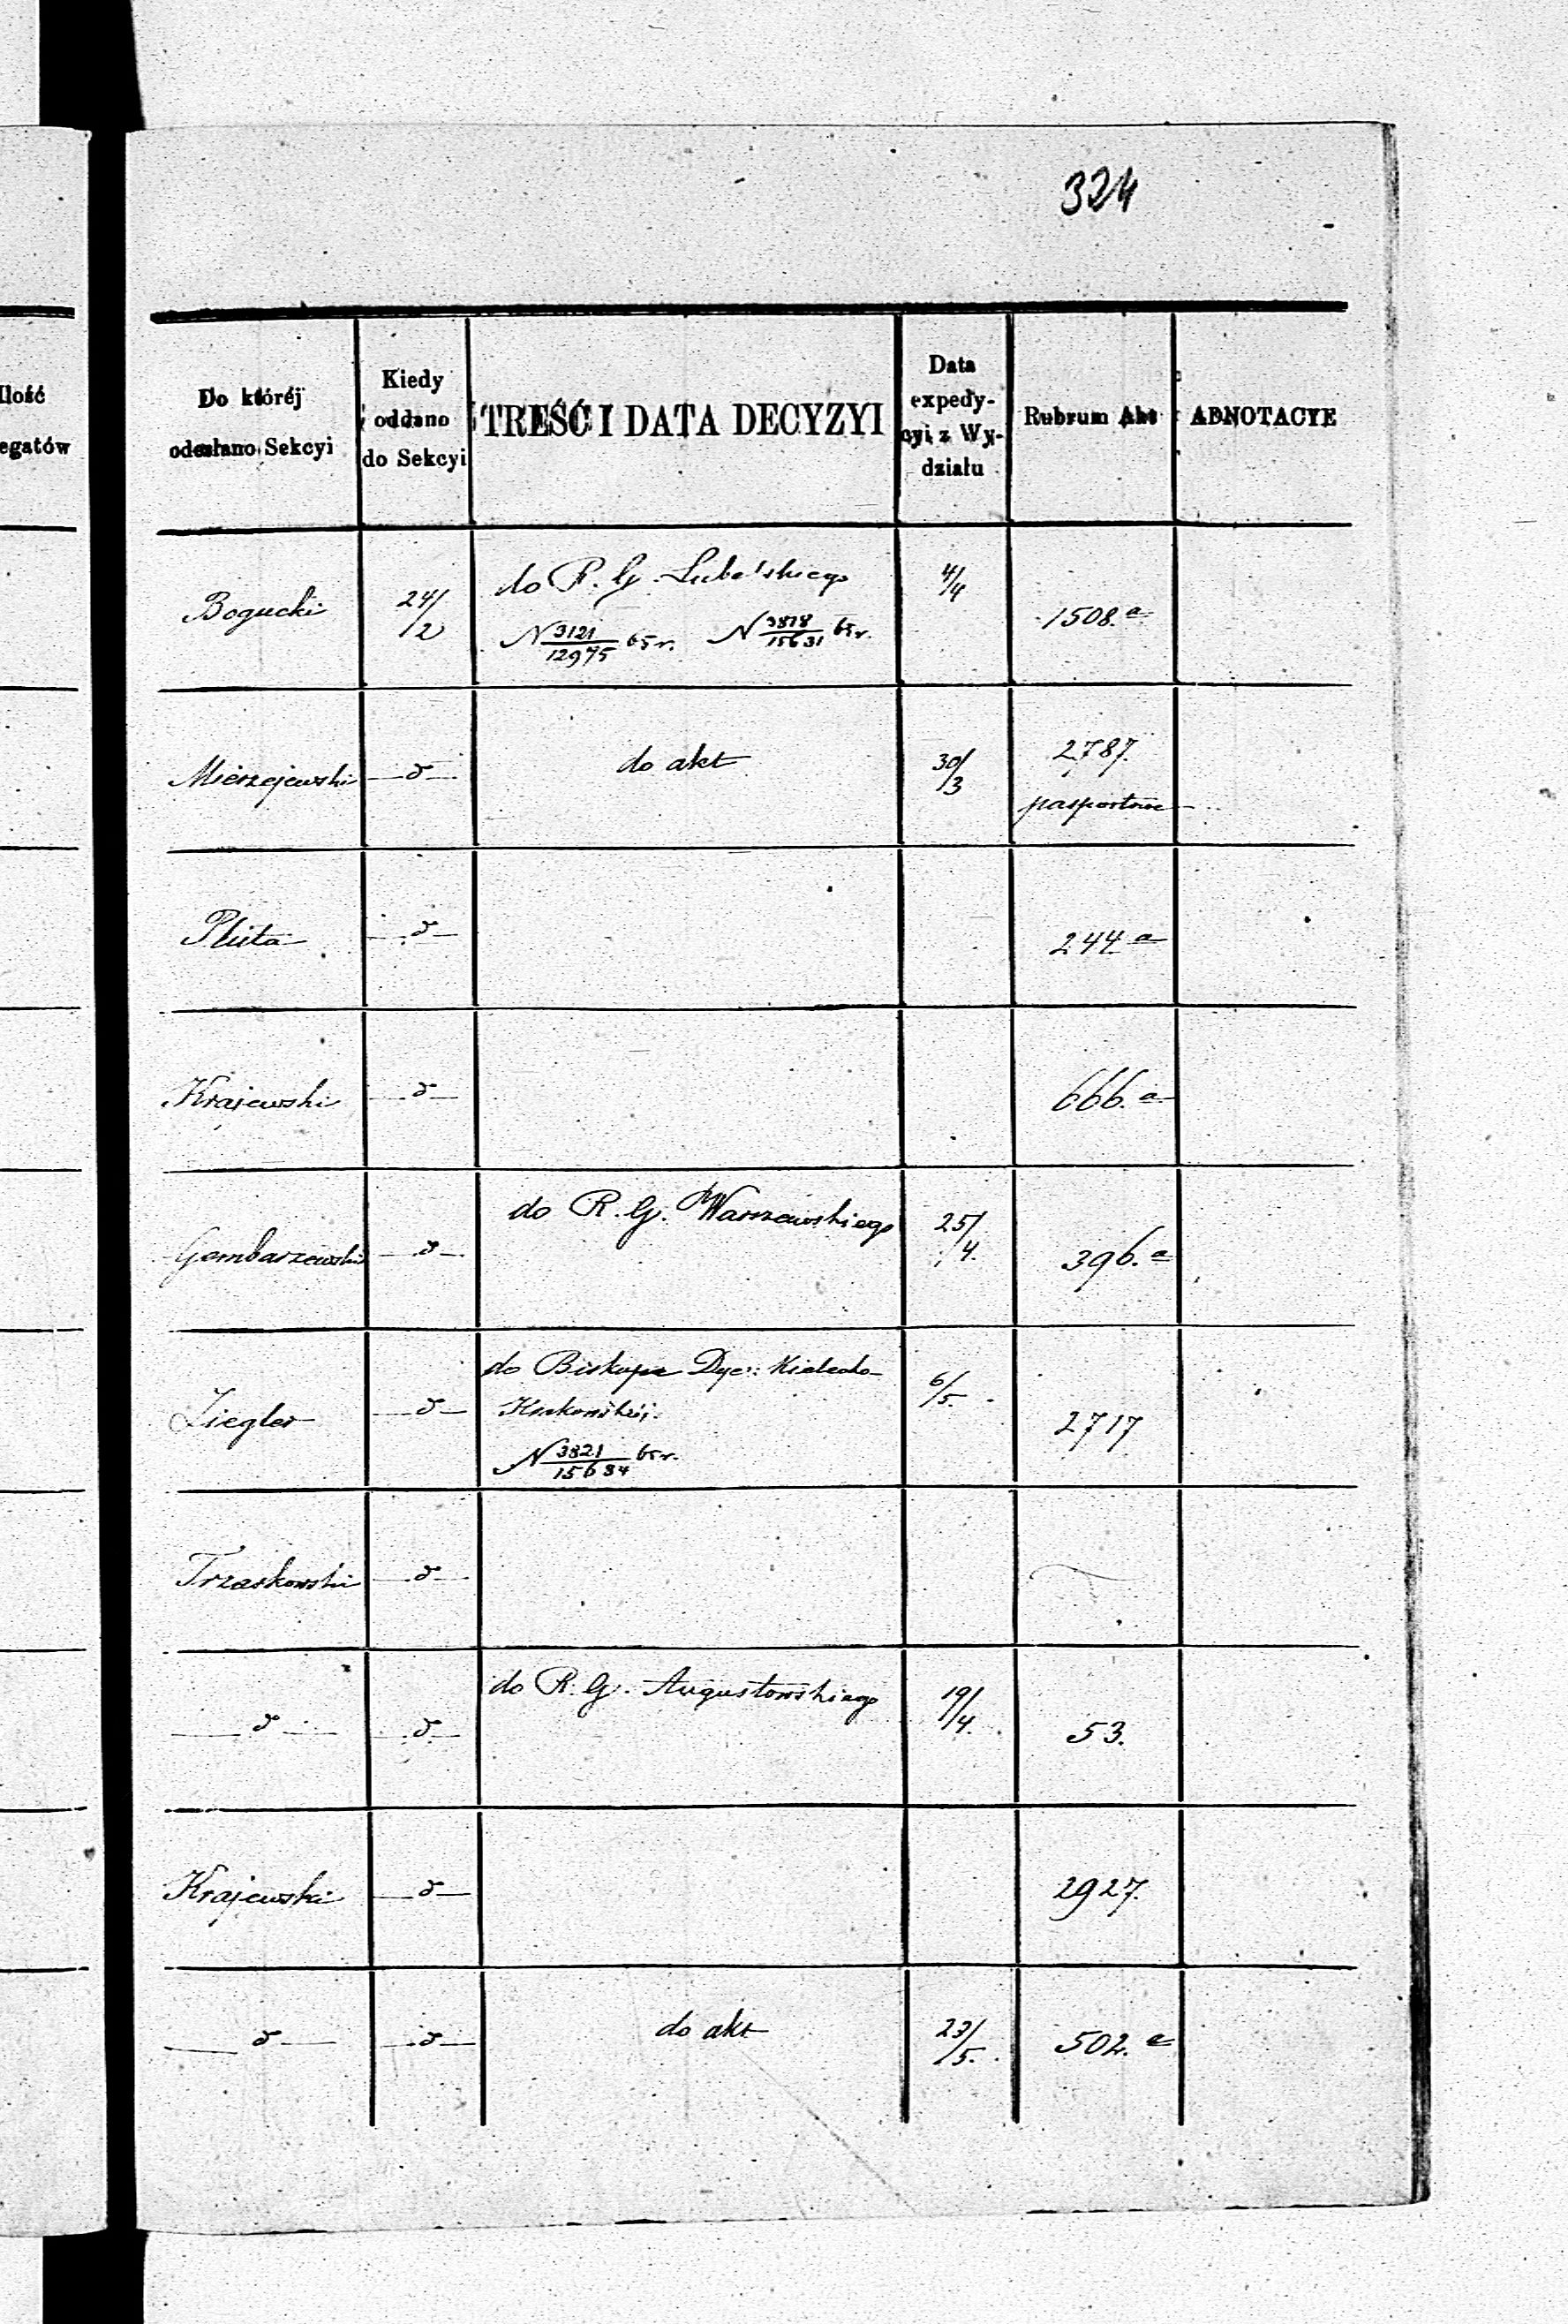 324
Ilość
egatów
Do któréj
odesłano Sekcyi
Kiedy
oddano
do Sekcyi
TREŚĆ I DATA DECYZYI
Data
expedy-
cyi z Wy-
działu
Rubrum Akt
ADNOTACYE
Bogucki 24/2 do R. G. Lubelskiego 4/4 1508. a
N 3121/12975 65 r. N 3818/15631 65 r.
Mierzejewski — d — do akt 30/3 2787.
pasportowe
Pluta — d — 244 a
Krajewski — d — 666. a
Gombarzewski — d — do R. G. Warszawskiego 25/4. 396. a
Ziegler — d — do Biskupa Dyec: Kielecko- 6/5. 2717
Krakowskiéj.
N 3821/15634 65 r.
Trzaskowski — d —
— d — — d — do R. G. Augustowskiego 19/4. 53.
Krajewski — d — 2927.
— d — — d — do akt 23/5. 502. a